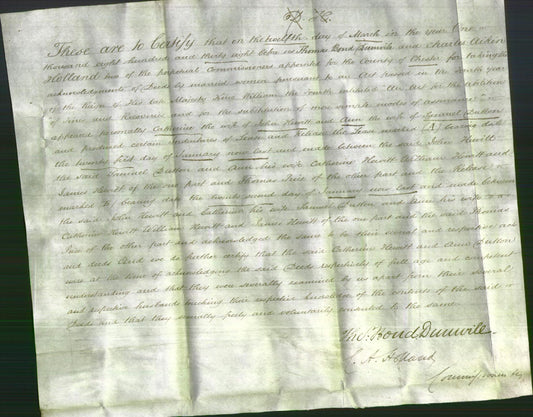 These are to Certify that on the twelfth day of March in the year One
thousand eight hundred and thirty eight before us Thomas Bond Dunvile and Charles Aiden
Holland two of the perpetual Commissioners appointed for the County of Chester for taking the
acknowledgments of Deeds by married women pursuant to an Act passed in the fourth year
of the Reign of His late Majesty King William the Fourth intituled "An Act for the abolition
of Fines and Recoveries and for the substitution of more simple modes of assurance"
appeared personally Catherine the wife of John Hewitt and Ann the wife of Samuel Dutton
and produced certain Indentures of Lease and Release the Lease marked (A) bearing date
the twenty first day of January now last and made between the said John Hewitt
the said Samuel Dutton and Ann his wife Catherine Hewitt William Hewitt and
James Hewitt of the one part and Thomas Price of the other part and the Release
marked bearing date the twenty second day of January now last and made between
the said John Hewitt and Catherine his wife Samuel Dutton and Ann his wife
Catherine Hewitt William Hewitt and James Hewitt of the one part and the said Thomas
Price of the other part and acknowledged the same to be their several and respective acts
and deeds And we do further certify that the said Catherine Hewitt and Ann Dutton
was at the time of acknowledging the said Deeds respectively of full age and competent
understanding and that they were severally examined by us apart from their several
and respective husbands touching their respective knowledge of the contents of the said
Deeds and that they severally freely and voluntarily consented to the same
Thos. Bond Dunvile
C. A. Holland